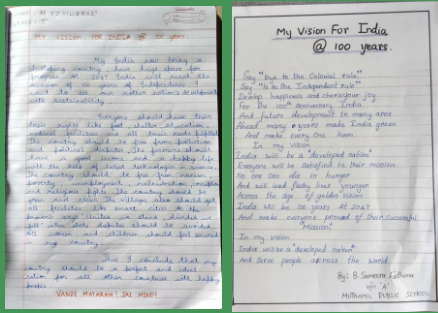 MY VISION FOR INDIA @ 100 years.
My India now being a
developing country have huge space for
progress. At 2047 India will reach the
occasion of 100 years of Independence. I
want to see our nation
with sustainability.
Everyone should have their
basic rights like food, shelter, education
medical facilities are all basic needs
The country should be free from pollution
and political disputes. The farmers should
have a good income and a happy life
with the help of latest technologies & science.
The country should be free from
poverty, unemployment, malnutrition,
and religious fights. The country should be
green and clean. The villages also should get
all facilities like smart cities. As the
says United we stand, divided we
fall
women and children should feel secured
in my country.
Thus I conclude that my
country should be a perfect and ideal
nation for all other countries with happy
people.
VANDE MATARAM! JAI HIND!
My Vision For India
@ 100 years.
Say "bye to the Colonial rule"
Say "Hi to the Independent rule"
Develop happiness and cherish your joy
For the 100th anniversary India
And future development in many area
Ahead many years make India green
And make every one
In my Vision
India will be a "developed nation"
Everyone will be satisfied in their mission
No one can die in hunger
And will lead younger
Across the age of golden vision
India will be 100 years At 2047
And make everyone proud of their successful
"Mission!"
In my vision
India will be a "developed nation"
And serve people across the world.
By: B. Sameera Fathima
VIII 'A'
MUTHAMIL PUBLIC SCHOOL